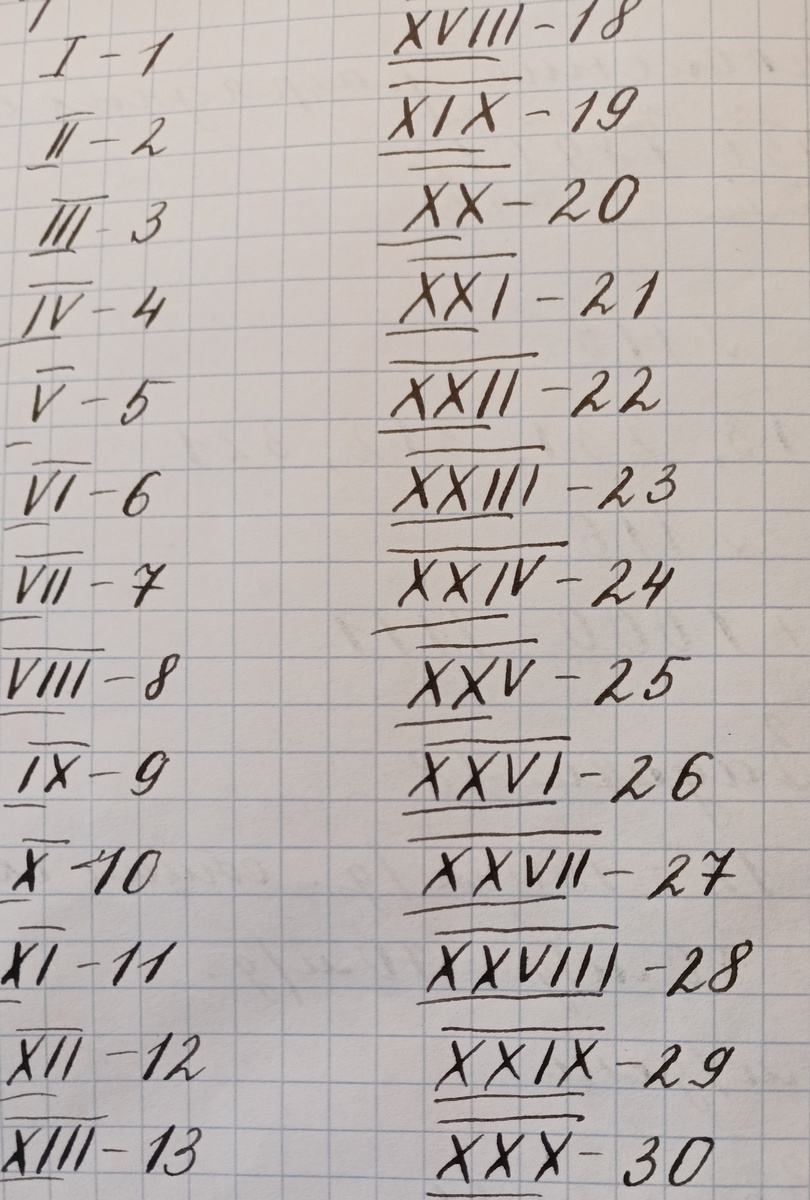 I - 1
II - 2
III - 3
IV - 4
V - 5
VI - 6
VII - 7
VIII - 8
IX - 9
X - 10
XI - 11
XII - 12
XIII - 13
XVIII - 18
XIX - 19
XX - 20
XXI - 21
XXII - 22
XXIII - 23
XXIV - 24
XXV - 25
XXVI - 26
XXVII - 27
XXVIII - 28
XXIX - 29
XXX - 30